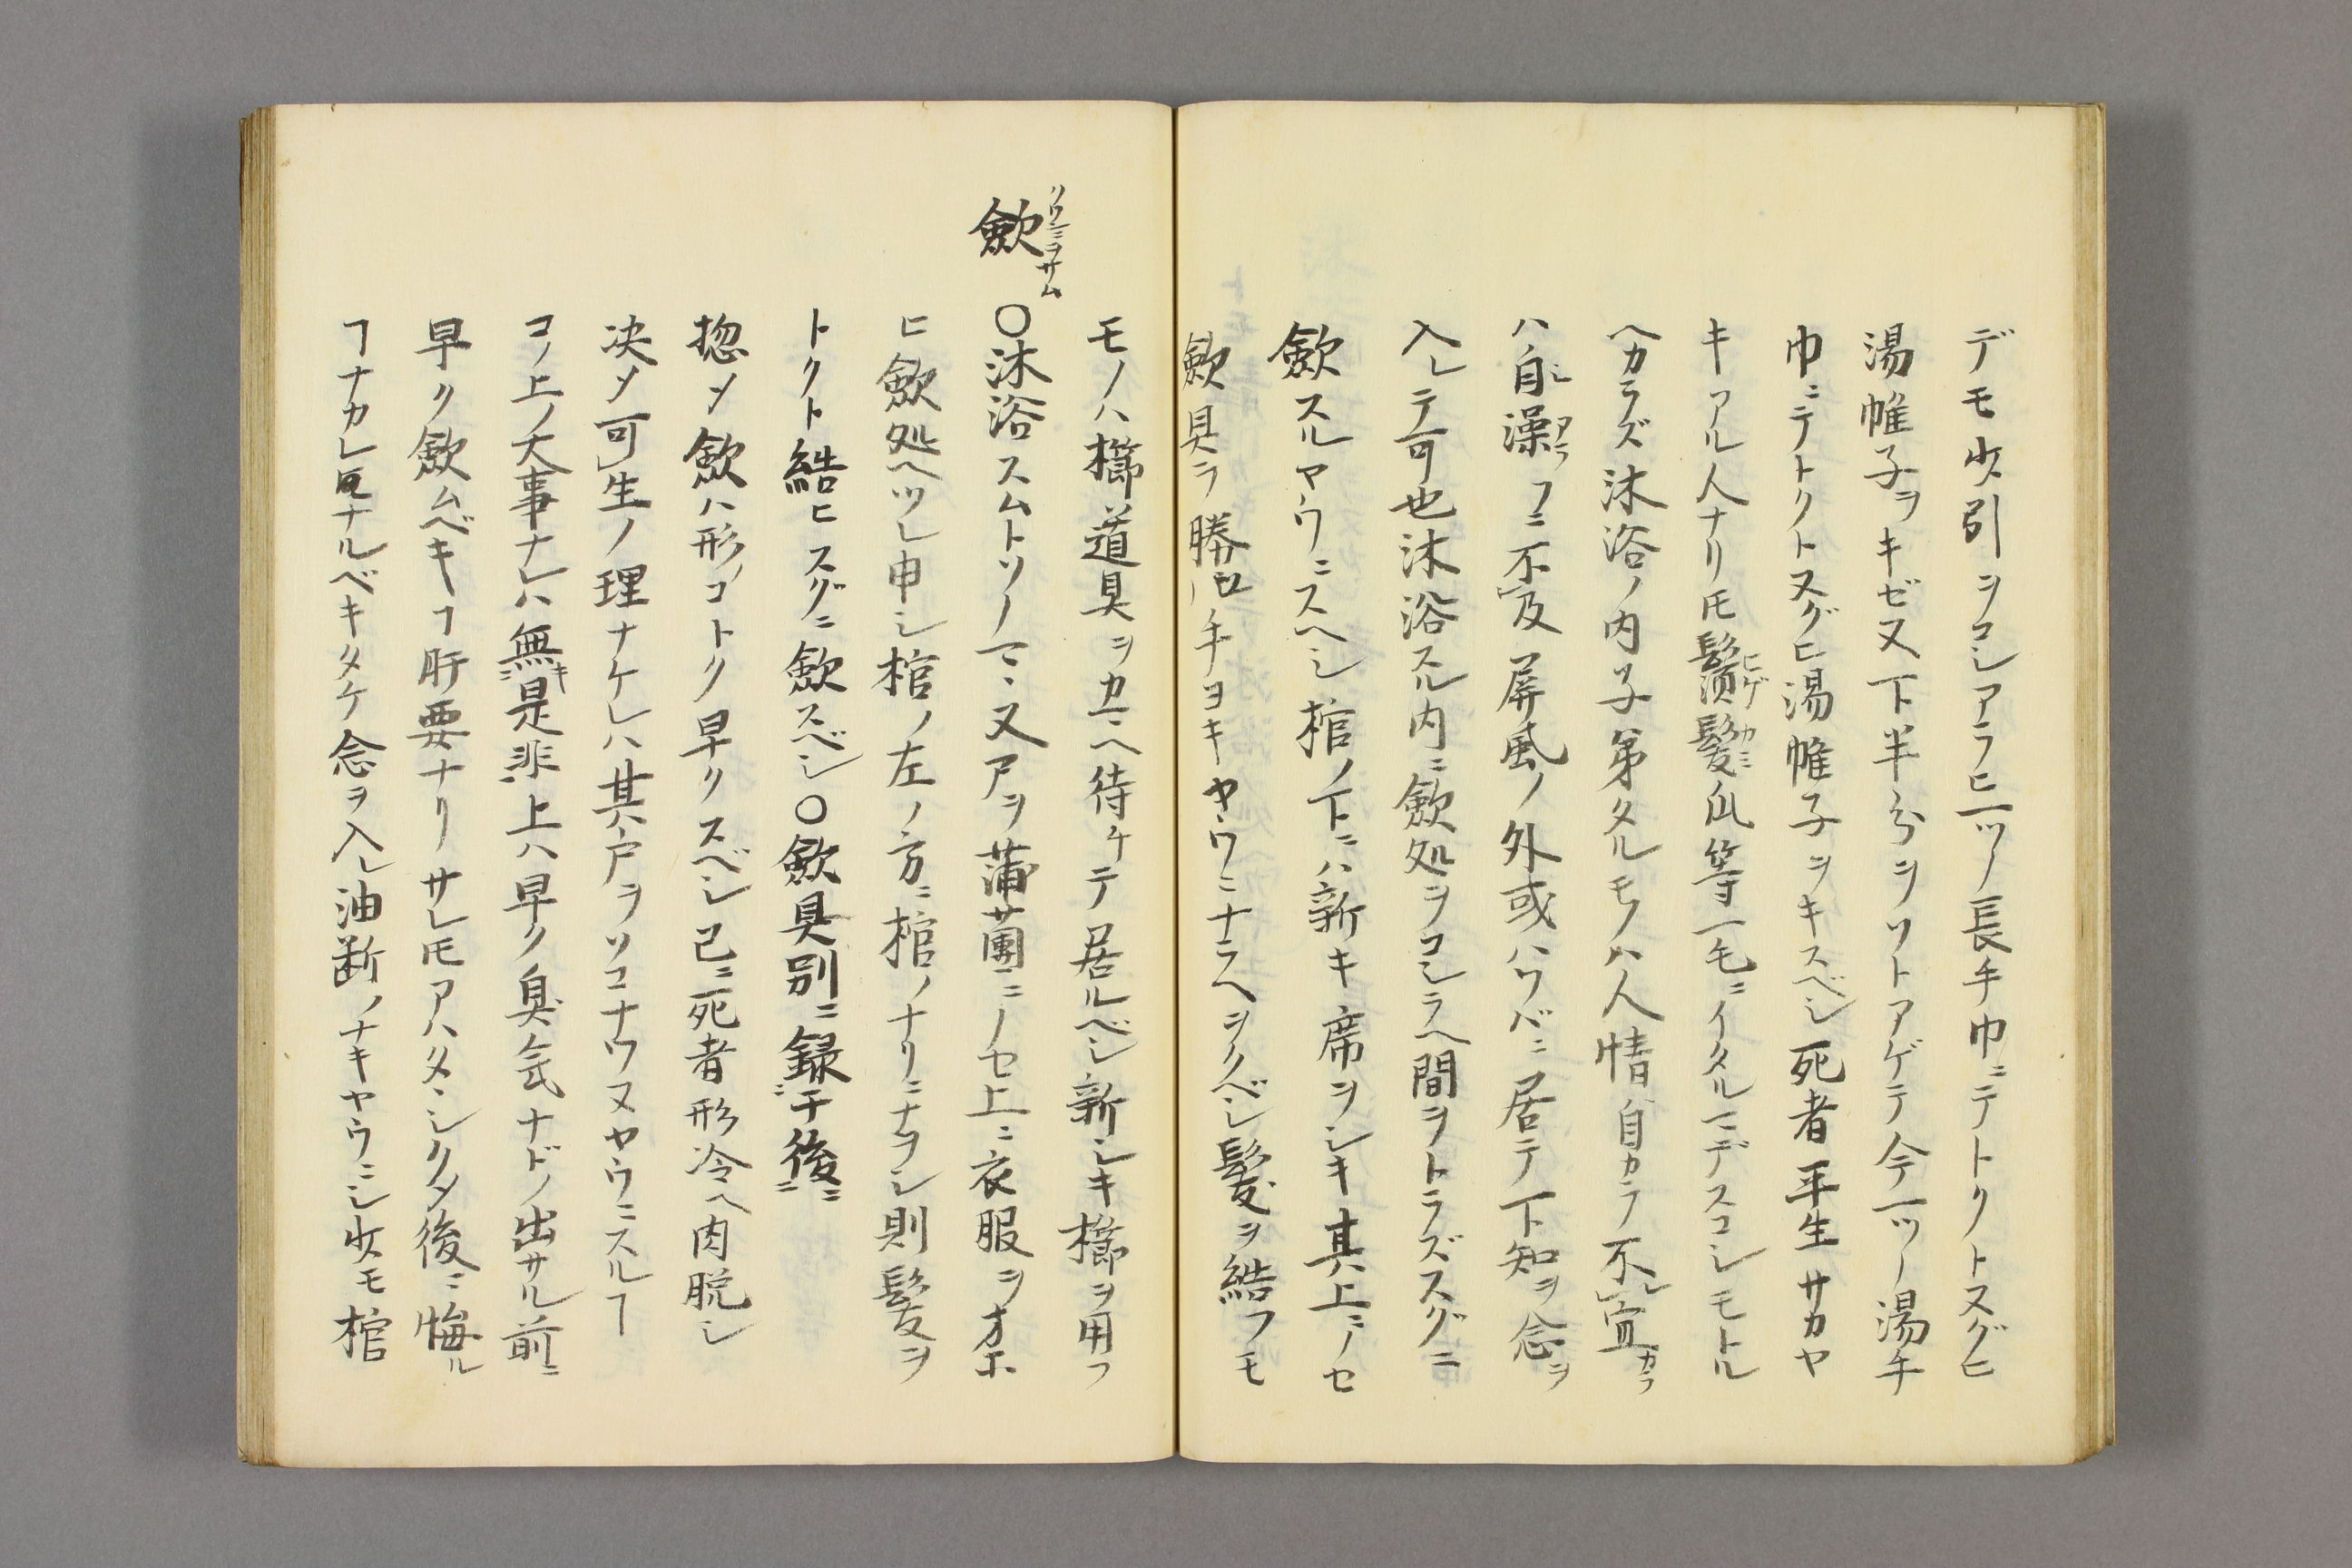 デモ少引ヲコシアラヒ一ツノ長手巾ニテトクトヌグヒ
湯帷子ヲキゼ又下半分ヲソトアゲテ今一ツノ湯手
巾ニテトクトヌグヒ湯帷子ヲキスベシ死者平生サカヤ
キアル人ナリ𪜈鬚髪爪等一毛ニイタルマデスコシモトル
ヒゲカミ
ヘカラズ沐浴ノ内子弟タルモノハ人情自カラ不レ宜カラ
ハ自ラ澡アラフニ不及屏風ノ外或ハソバニ居テ下知ヲ念ヲ
入レテ可也沐浴スル内ニ歛処ヲコシラヘ間ヲトラズスグニ
歛スルヤウニスヘシ棺ノ下ニハ新キ席ヲシキ其上ニノセ
歛具ヲ勝手ヨキヤウニナラヘヲクベシ髪ヲ結フモ
モノハ櫛道具ヲカマヘ待ケテ居ルベシ新シキ櫛ヲ用フ
歛
リウニヲサム
〇沐浴スムトソノマヽ又尸ヲ蒲團ニノセ上ニ衣服ヲオホ
ヒ歛処ヘツレ申シ棺ノ左ノ方ニ棺ノナリニナヲシ則髪ヲ
トクト結ヒスグニ歛スベシ〇歛具別ニ録ニ于後ニ
惣〆歛ハ形ノコトク早クスベシ已ニ死者形冷ヘ肉脱シ
决〆可生ノ理ナケレハ其尸ヲソコナワヌヤウニスルヿ
コノ上ノ大事ナレハ無キ是非上ハ早ク臭気ナドノ出サル前ニ
早ク歛ムベキヿ肝要ナリサレ𪜈アハタヽシクメ後ニ悔ル
ヿナカレ冝ナルベキタケ念ヲ入レ油断ノナキヤウニシ少モ棺